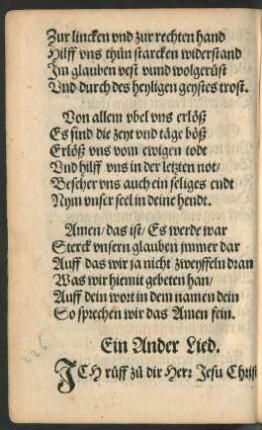 Zur lincken vnd zur rechten hand
Hilff vns thůn starcken widerstand
Im glauben vest vnnd wolgerüst
Vnd durch des heyligen geystes trost.
Von allem vbel vns erlöß
Es sind die zeyt vnd täge böß
Erlöß vns vom ewigen todt
Vnd hilff vns in der letzten not/
Bescher vns auch ein seliges endt
Nym vnser seel in deine hendt.
Amen/ das ist/ Es werde war
Sterck vnsern glauben jmmer dar
Auff das wir ja nicht zweyffeln dran
Was wir hiemit gebeten han/
Auff dein wort in dem namen dein
So sprechen wir das Amen fein.
Ein Ander Lied.
ICH rüff zů dir Herr Jesu Christ